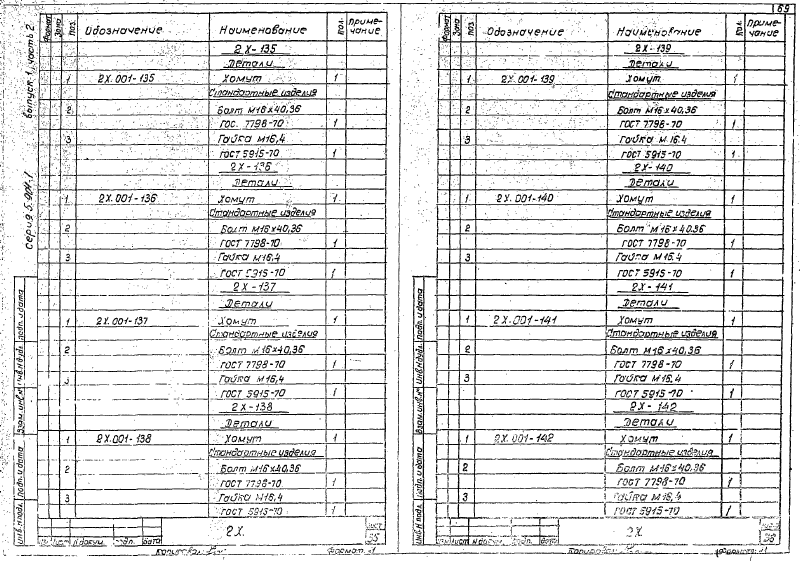 169
серия 5.904-1 выпуск 1, часть 2
Формат Зона Поз. Обозначение Наименование Кол. Примечание
2Х-135
Детали
1 2Х.001-135 Хомут 1
Стандартные изделия
2 Болт М16×40,36
ГОСТ 7798-70 1
3 Гайка М16,4
ГОСТ 5915-70 1
2Х-136
Детали
1 2Х.001-136 Хомут 1
Стандартные изделия
2 Болт М16×40,36
ГОСТ 7798-70 1
3 Гайка М16,4
ГОСТ 5915-70 1
2Х-137
Детали
1 2Х.001-137 Хомут 1
Стандартные изделия
2 Болт М16×40,36
ГОСТ 7798-70 1
3 Гайка М16,4
ГОСТ 5915-70 1
2Х-138
Детали
1 2Х.001-138 Хомут 1
Стандартные изделия
2 Болт М16×40,36
ГОСТ 7798-70 1
3 Гайка М16,4
ГОСТ 5915-70 1
Инв.№подл. Подп. и дата Взам.инв.№ Инв.№дубл. Подп. и дата
Изм Лист №докум. Подп. Дата
2Х.
Лист
35
Копировал
Формат
Формат Зона Поз. Обозначение Наименование Кол. Примечание
2Х-139
Детали
1 2Х.001-139 Хомут 1
Стандартные изделия
2 Болт М16×40,36
ГОСТ 7798-70 1
3 Гайка М16.4
ГОСТ 5915-70 1
2Х-140
Детали
1 2Х.001-140 Хомут 1
Стандартные изделия
2 Болт М16×40,36
ГОСТ 7798-70 1
3 Гайка М16.4
ГОСТ 5915-70 1
2Х-141
Детали
1 2Х.001-141 Хомут 1
Стандартные изделия
2 Болт М16×40,36
ГОСТ 7798-70 1
3 Гайка М16,4
ГОСТ 5915-70 1
2Х-142
Детали
1 2Х.001-142 Хомут 1
Стандартные изделия
2 Болт М16×40,36
ГОСТ 7798-70 1
3 Гайка М16,4
ГОСТ 5915-70 1
Инв.№подл. Подп. и дата Взам.инв.№ Инв.№дубл. Подп. и дата
Изм Лист №докум. Подп. Дата
2Х
Лист
Копировал
Формат